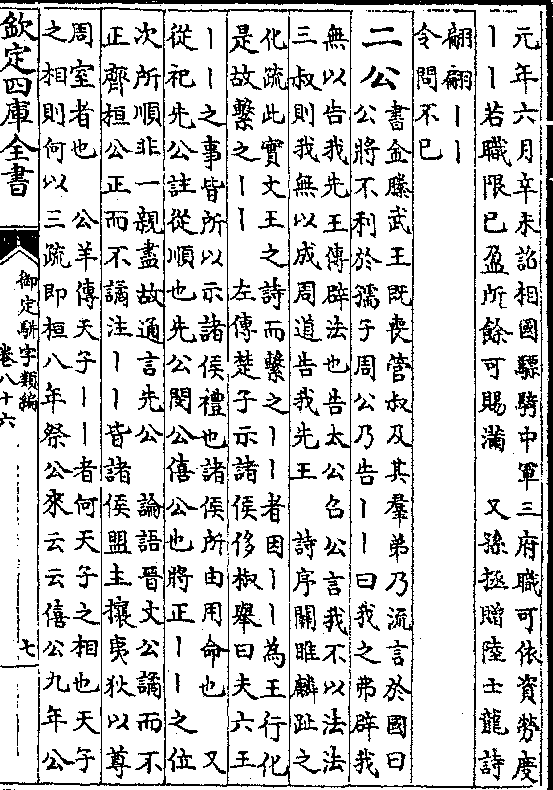 元年六月辛未詔相國驃騎中軍三府職可依資勞度
丨丨若職限已盈所餘可賜滿　又孫拯贈陸士龍詩
翩翩丨丨
令問不已
二公　書金縢武王既喪管叔及其羣弟乃流言於國曰
公將不利於孺子周公乃告丨丨曰我之弗辟我
無以告我先王傳辟法也告太公召公言我不以法法
三叔則我無以成周道告我先王　詩序關雎麟趾之
化疏此實文王之詩而繫之丨丨者因丨丨為王行化
是故繫之丨丨　左傳楚子示諸侯侈椒舉曰夫六王
丨丨之事皆所以示諸侯禮也諸侯所由用命也　又
從祀先公註從順也先公閔公僖公也將正丨丨之位
次所順非一親盡故通言先公　論語晉文公譎而不
正齊桓公正而不譎注丨丨皆諸侯盟主攘夷狄以尊
周室者也　公羊傳天子丨丨者何天子之相也天子
之相則何以三疏即桓八年祭公來云云僖公九年公
欽定四庫全書
御定駢字類編
卷八十六
七